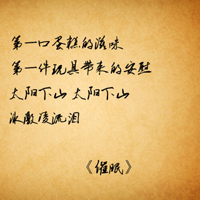 第一口蛋糕的滋味
第一件玩具带来的安慰
太阳下山 太阳下山
冰激凌流泪
《催眠》